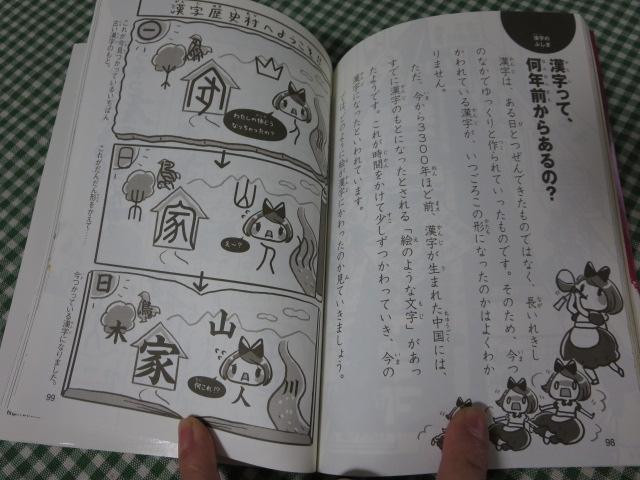 漢字の
ふしぎ
漢字って、
何年前からあるの？
漢字は、ある日とつぜんできたものではなく、長いれきし
のなかでゆっくりと作られていったものです。そのため、今つ
かわれている漢字が、いつごろこの形になったのかはよくわか
りません。
ただ、今から3300年ほど前、漢字が生まれた中国には、
すでに漢字のもとになったとされる「絵のような文字」があっ
たようです。これが時間をかけて少しずつかわっていき、今の
漢字になったといわれています。
のように絵が漢字にかわったのか見ていきましょう。
98
漢字歴史村へようこそ!!
わたしの体どう
なっちゃったの？
これが今見つかっているいちばん
古い漢字のもと。
山
家
えー？
これがだんだん形をかえて…
日
山
木
家
人
何これ!?
今つかっている漢字になりました。
99